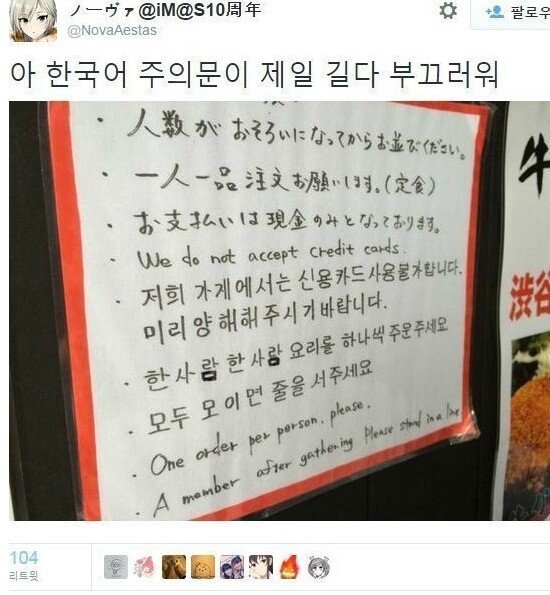 ノーヴァ@iM@S10周年
@NovaAestas
팔로우
아 한국어 주의문이 제일 길다 부끄러워
・人数がおそろいになってからお並びください。
・一人一品注文お願いします。(定食)
・お支払いは現金のみとなっております。
・We do not accept credit cards.
・저희 가게에서는 신용카드사용불가합니다.
미리양해해주시기바랍니다.
・한사람 한사람 요리를 하나씩 주문주세요
・모두 모이면 줄을 서주세요
・One order per person, please.
・A member after gathering Please stand in a line
牛
渋谷
104
리트윗